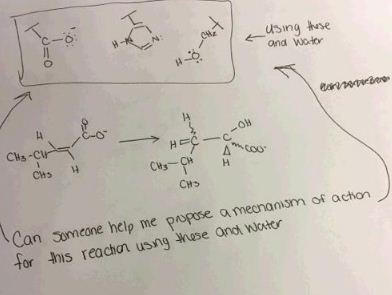 C-O:-
O
H-N N:
CH2
H-O:
← using these
and water
H
CH3-CH
CH3
H
O
C-O-
H
H-C-C-OH
COO-
H
CH3-CH
CH3
Can someone help me propose a mechanism of action
for this reaction using these and water